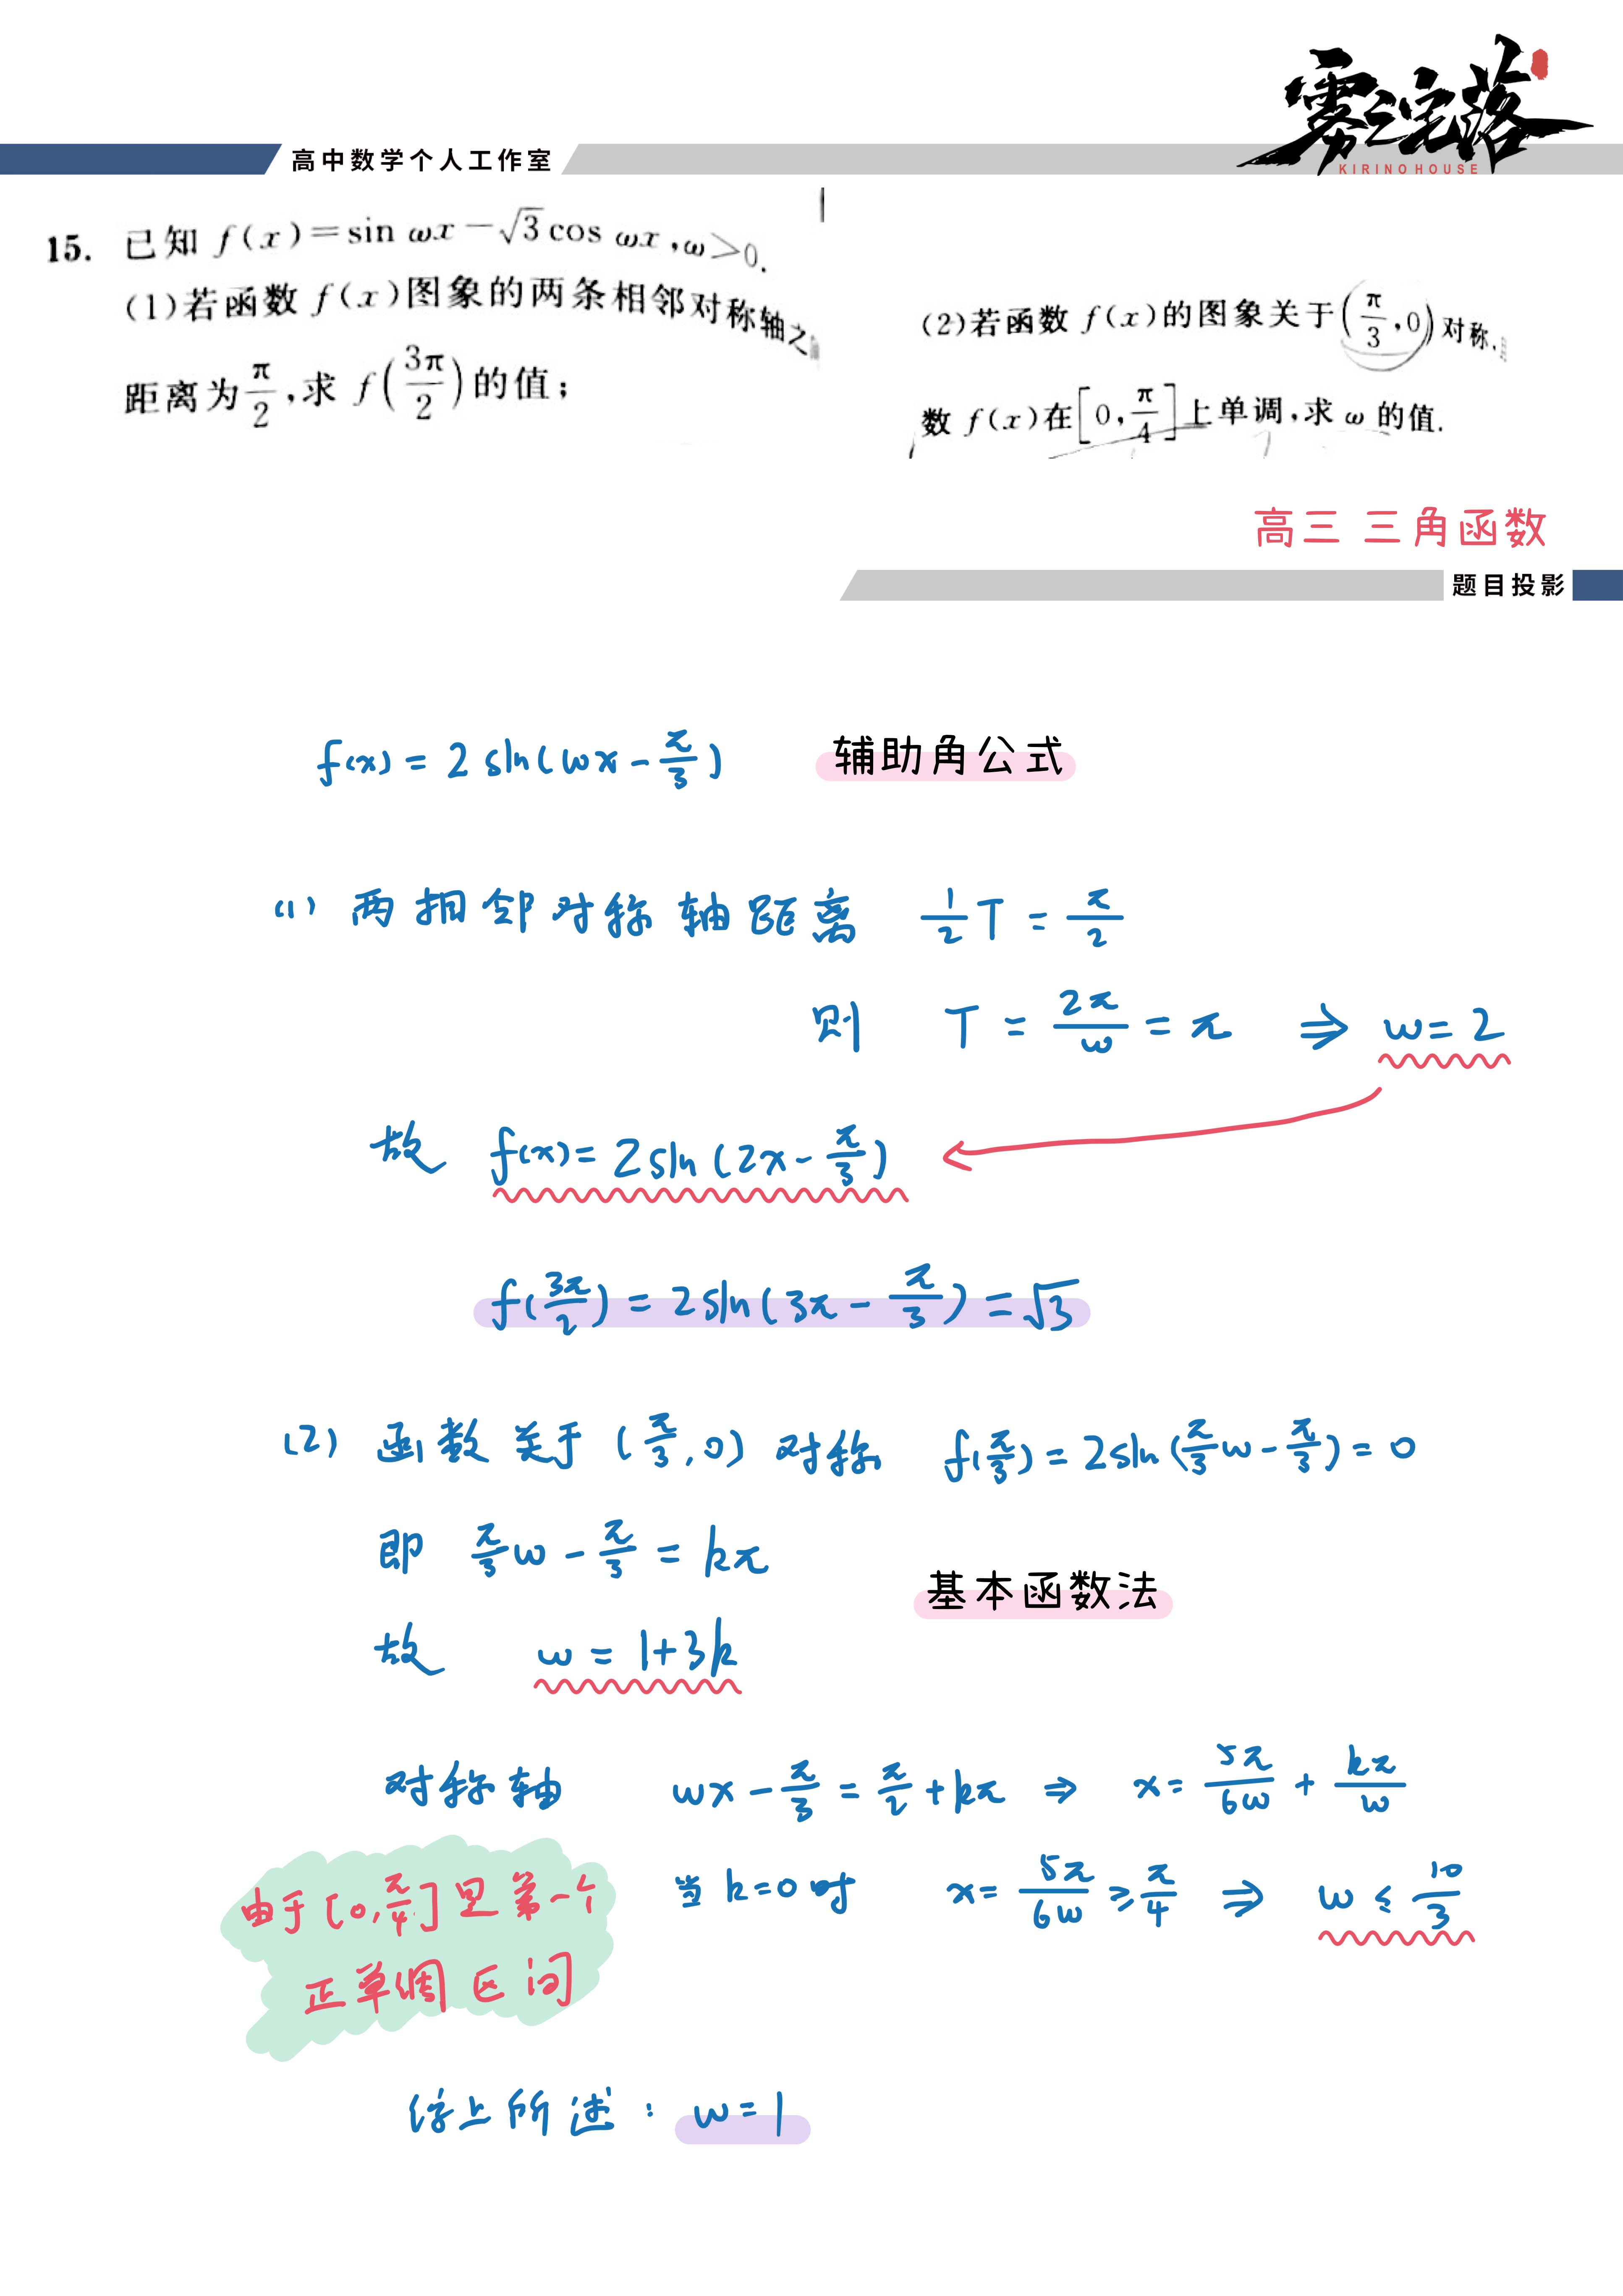 雾之宅落
KIRINO HOUSE
高中数学个人工作室
15. 已知 f(x)=sin ωx-√3cos ωx,ω>0.
(1)若函数 f(x)图象的两条相邻对称轴之
距离为π/2,求 f(3π/2)的值;
(2)若函数 f(x)的图象关于(π/3,0)对称,
数 f(x)在[0,π/4]上单调,求 ω 的值.
高三 三角函数
题目投影
f(x) = 2 sin(ωx - π/3) 辅助角公式
(1) 两相邻对称轴距离 1/2 T = π/2
则 T = 2π/ω = π ⇒ ω = 2
故 f(x) = 2sin(2x - π/3)
f(3π/2) = 2sin(3π - π/3) = √3
(2) 函数关于(π/3, 0)对称 f(π/3) = 2sin(π/3 ω - π/3) = 0
即 π/3 ω - π/3 = kπ
基本函数法
故 ω = 1+3k
对称轴 ωx - π/3 = π/2 + kπ ⇒ x = 5π/6ω + kπ/ω
由于[0, π/4]里第一个
正单调区间
当 k=0 时 x = 5π/6ω ≥ π/4 ⇒ ω ≤ 10/3
综上所述: ω = 1